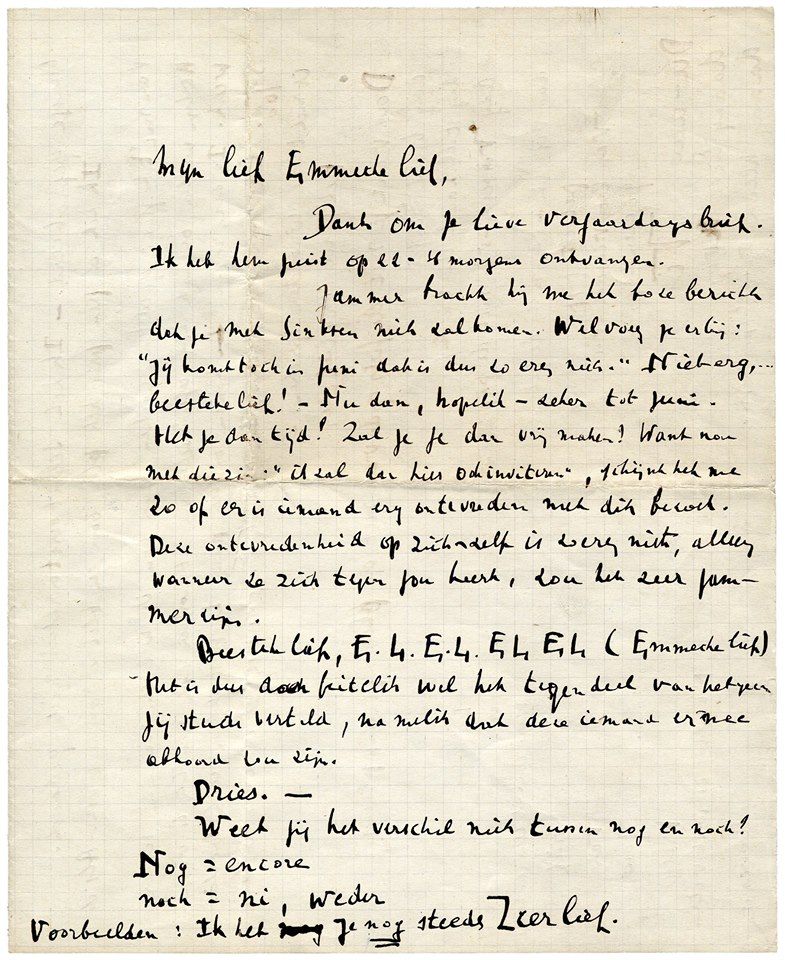 Mijn lief Emmeke lief,
Dank om je lieve verjaardagsbrief.
Ik heb hem juist op 22-4 morgens ontvangen.
Jammer bracht hij me het boze bericht
dat je met Sinksen niet zal komen. Wel voeg je erbij:
"Jij komt toch in juni dat is dus zo erg niet." Nietwaar,...
beestekelief! - Nu dan, hopelik - zeker tot juni.
Heb je dan tijd? Zal je je dan vrij maken? Want nou
met die zin: "ik zal dan hier ook inviteren", schijnt het me
zo of er is iemand erg ontevreden met dit bezoek.
Deze ontevredenheid op zich-zelf is zo erg niet, alleen
wanneer ze zich tegen jou keert, zou het zeer jam-
mer zijn.
Beestekelief, E. L. E. L. EL EL (Emmeke lief)
Het is dus doch feitelik wel het tegendeel van hetgeen
jij steeds verteld, namelik dat deze iemand ermee
akkoord zou zijn.
Dries. —
Weet jij het verschil niet tussen nog en noch?
Nog = encore
noch = ni, weder
Voorbeelden : Ik heb je nog steeds Zeer lief.